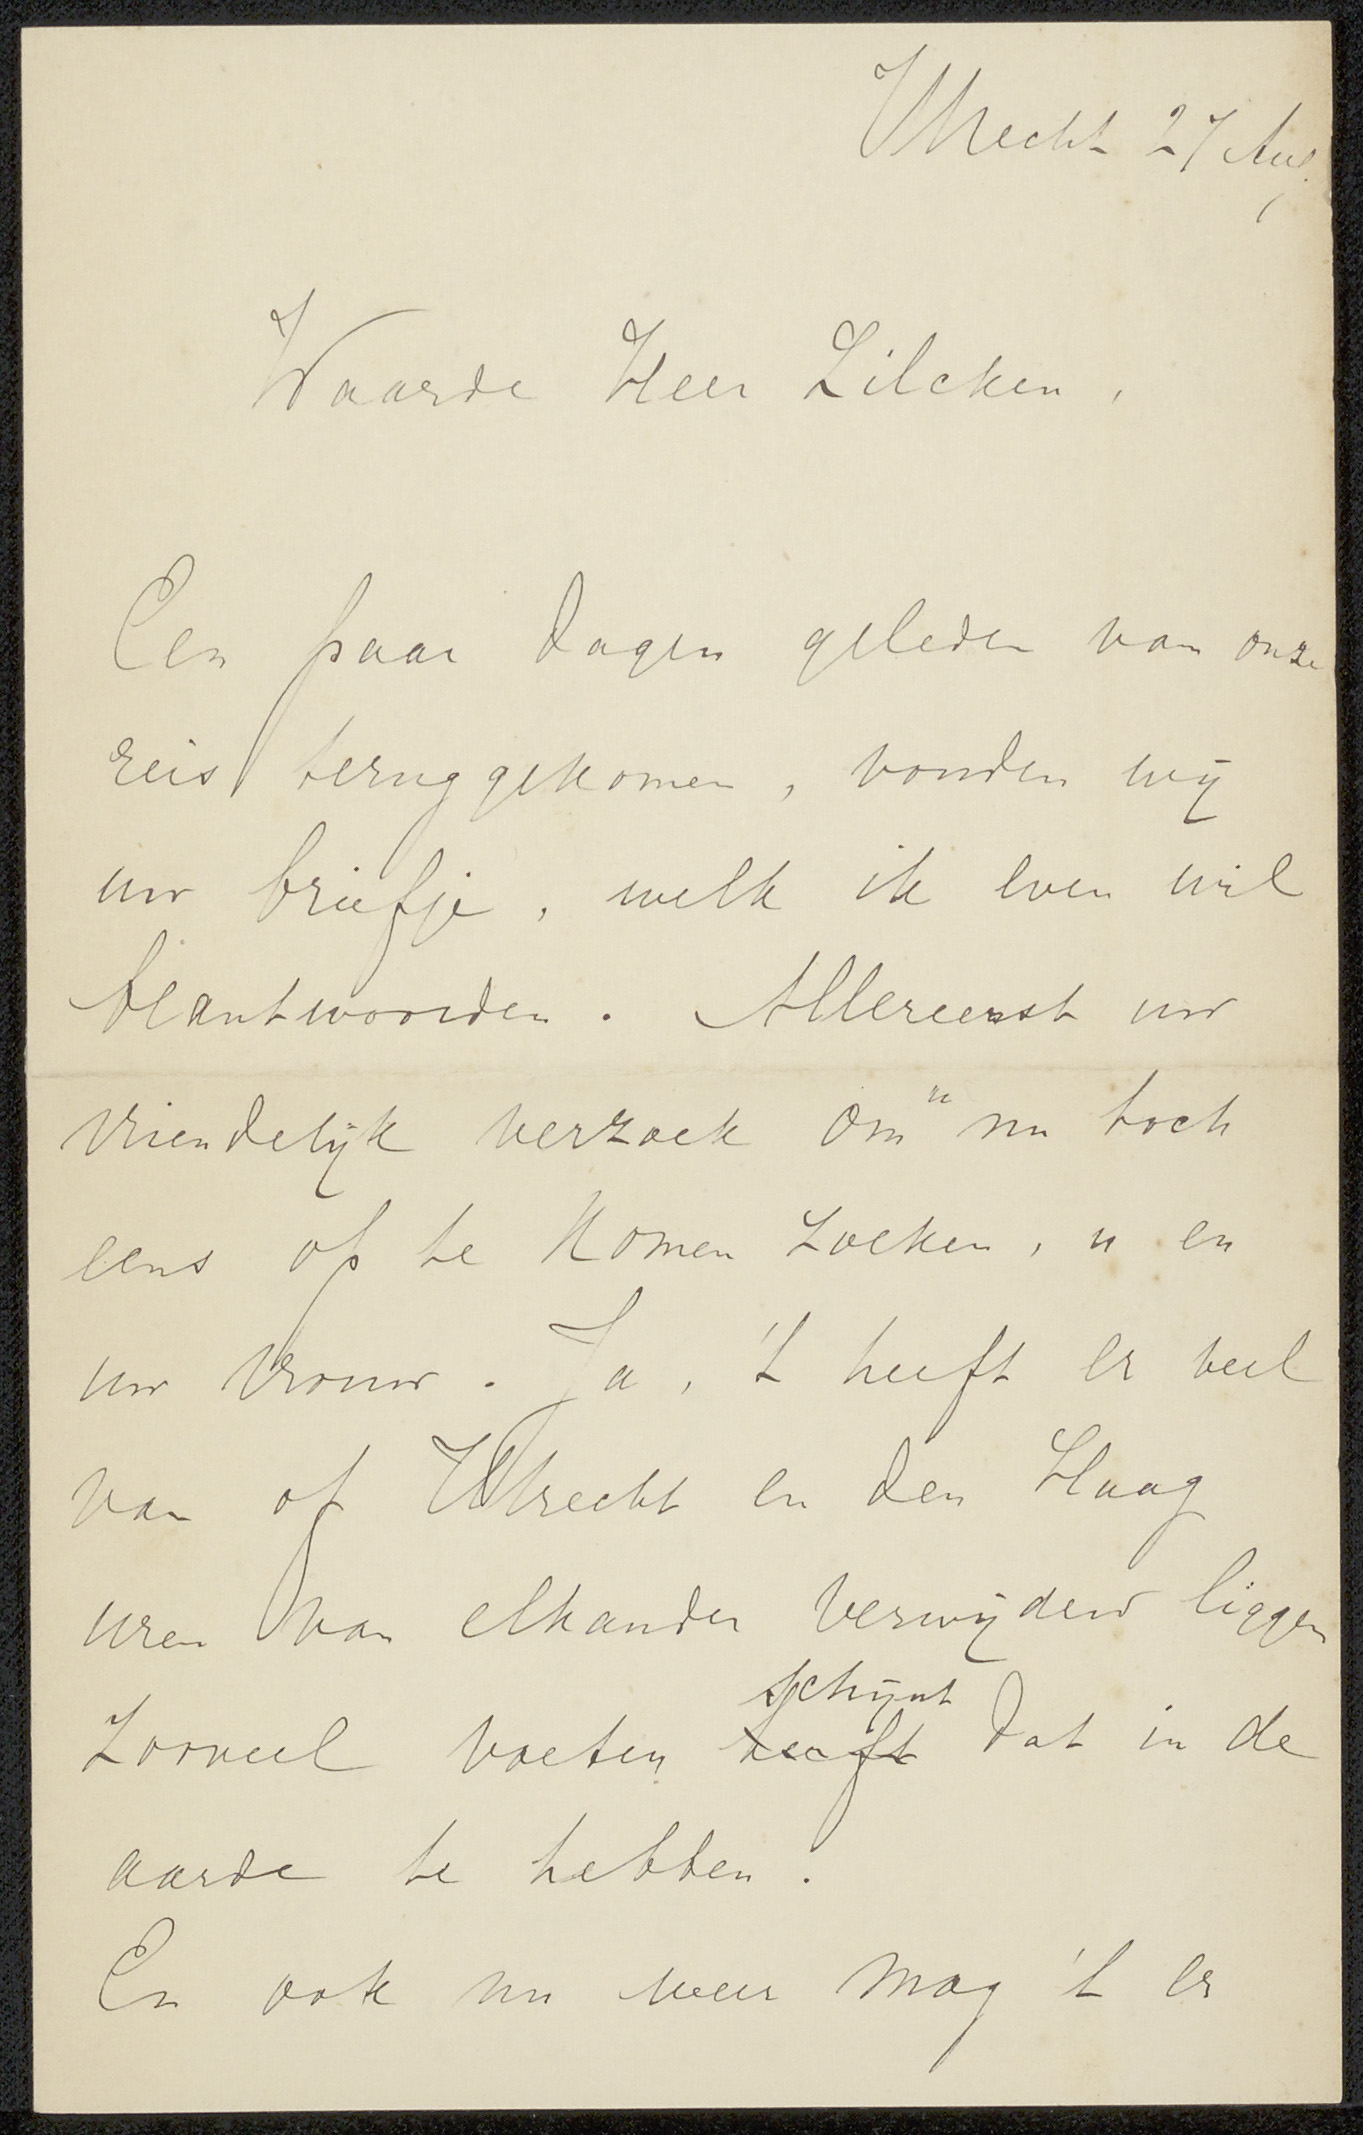 Utrecht 27 Aug.
Waarde Heer Zilcken,
Een paar dagen geleden van onze
reis teruggekomen, vonden wij
uw briefje, welk ik even wil
beantwoorden. Allereerst uw
vriendelijk verzoek om u nu toch
eens op te komen zoeken, u en
uw vrouw. Ja, 't heeft er veel
van of Utrecht en den Haag
uren van elkander verwijderd liggen
zooveel voeten heeft schijnt dat in de
aarde te hebben.
En ook nu weer mag 't er